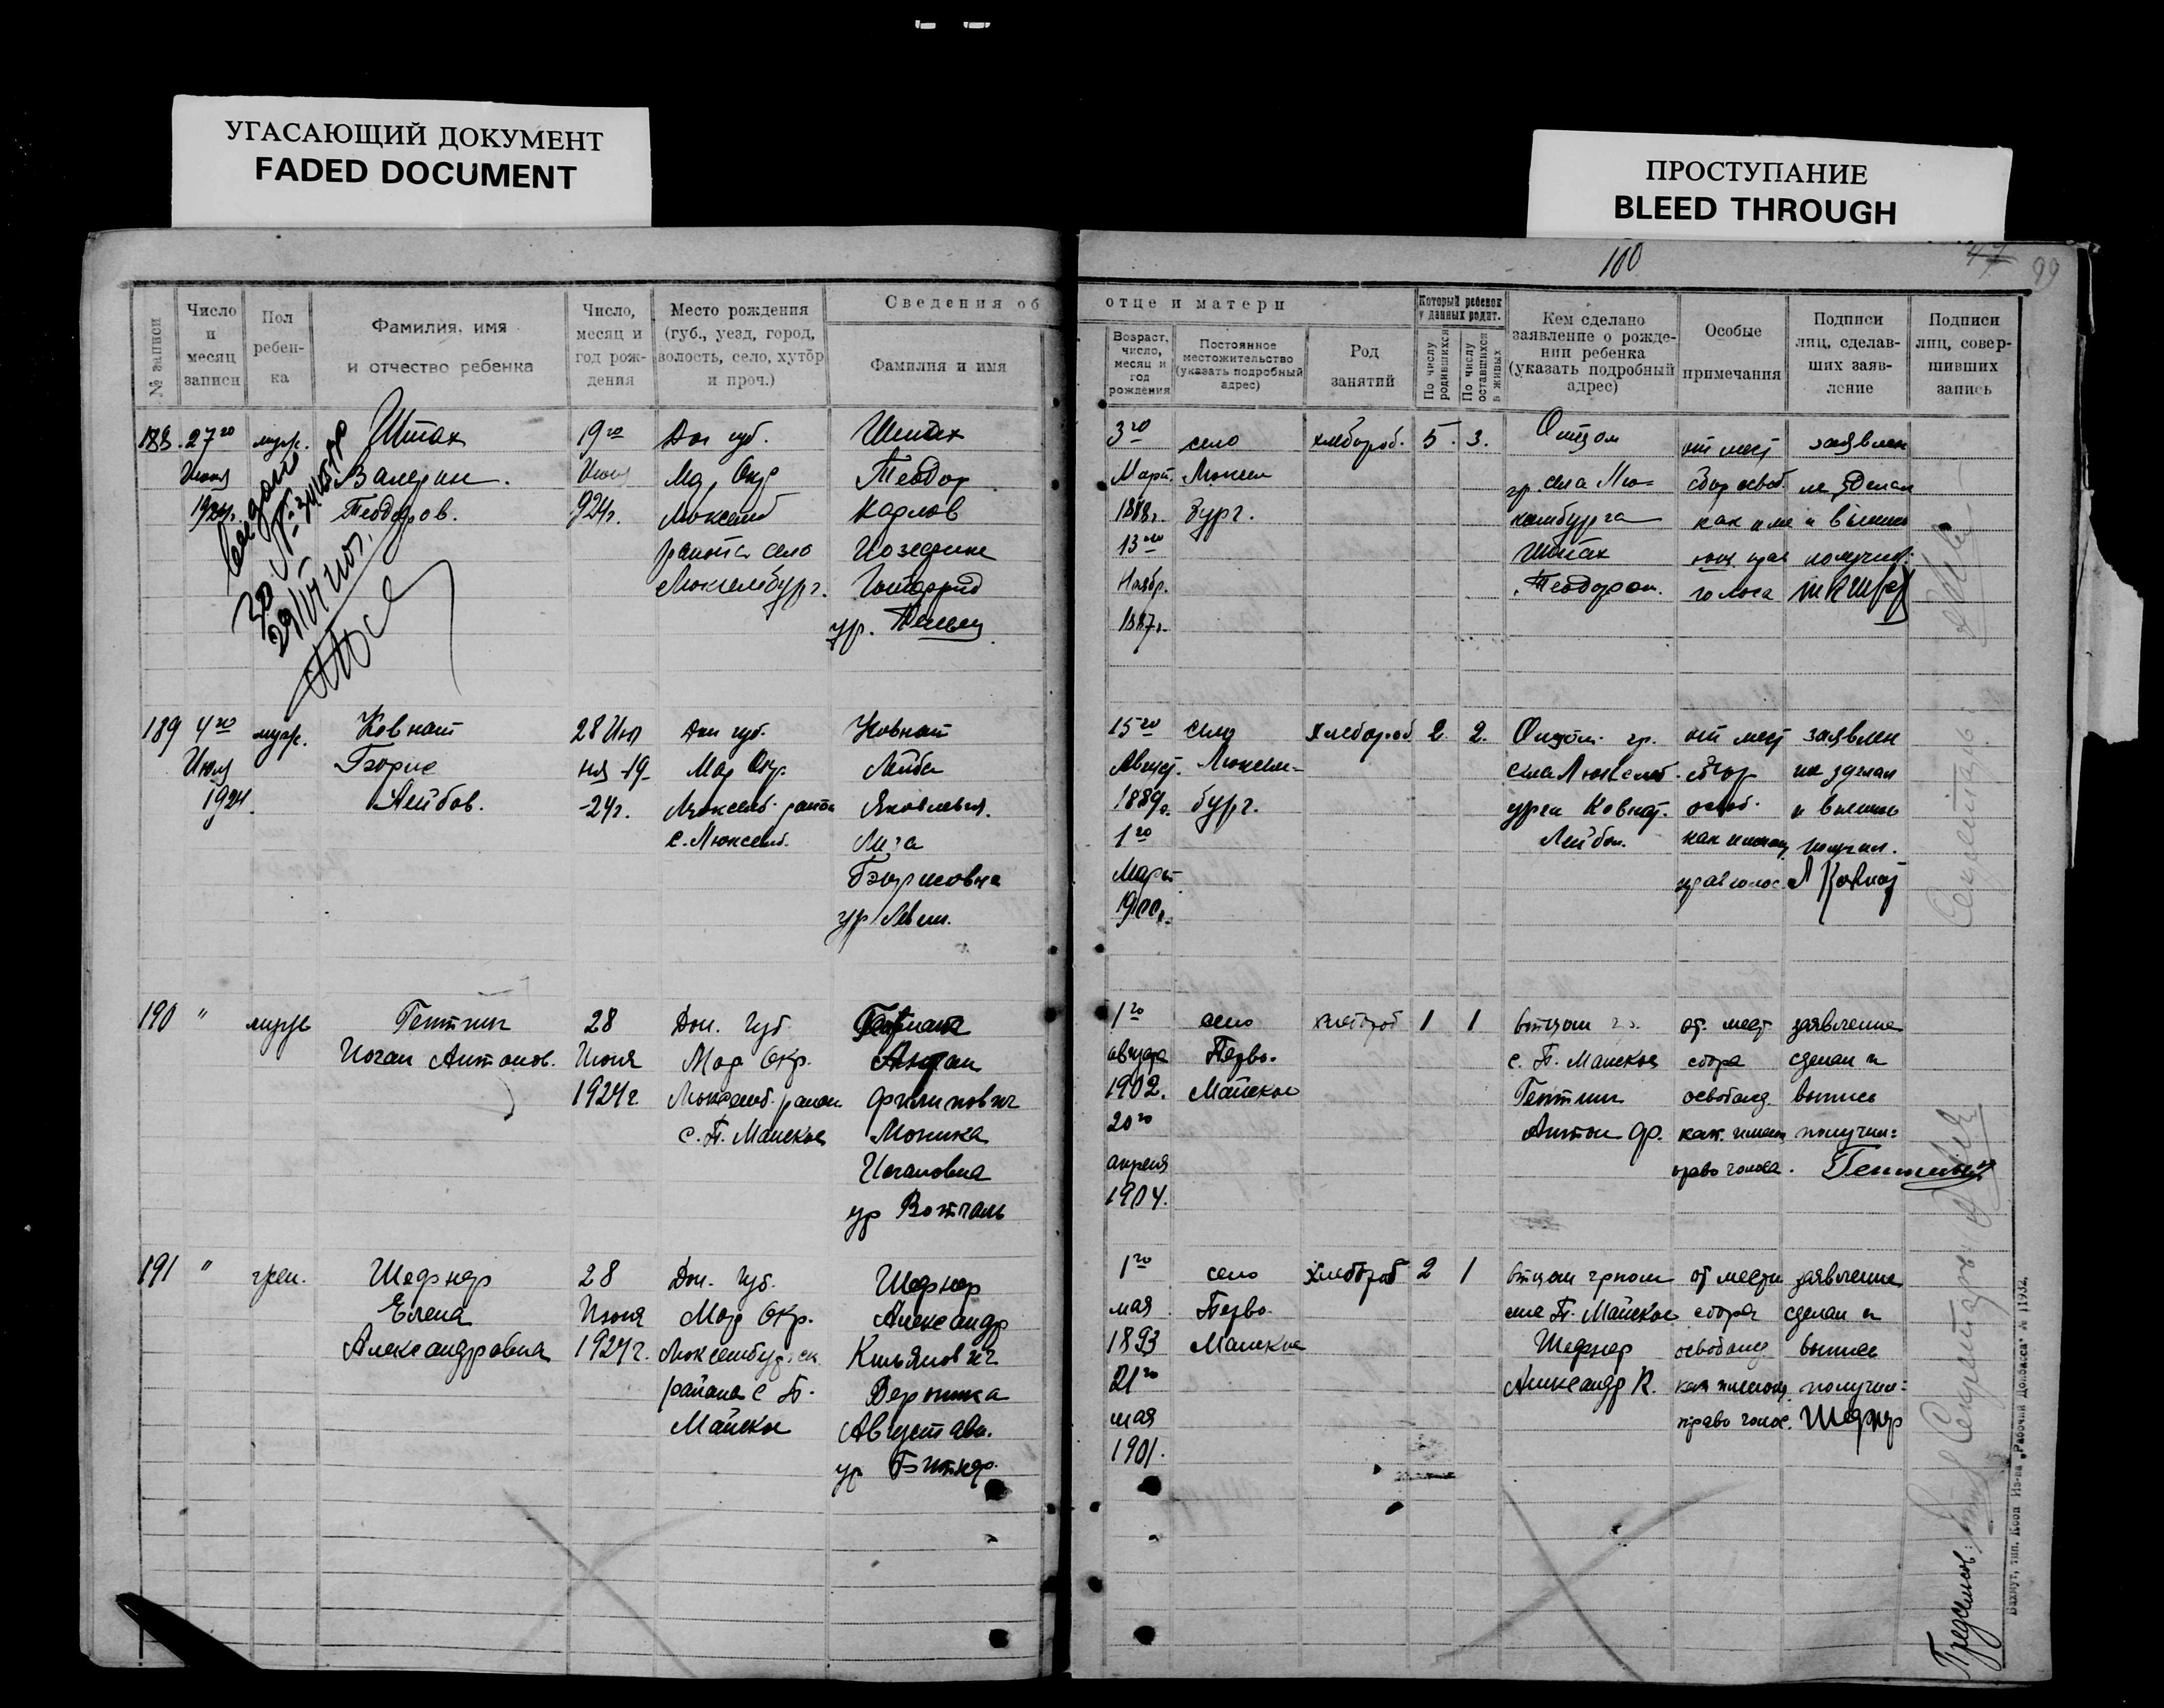 УГАСАЮЩИЙ ДОКУМЕНТ
FADED DOCUMENT
ПРОСТУПАНИЕ
BLEED THROUGH
100
47
99
№ записи
Число и месяц записи
Пол ребен-ка
Фамилия, имя и отчество ребенка
Число, месяц и год рож-дения
Место рождения (губ., уезд, город, волость, село, хутор и проч.)
Сведения об отце и матери
Фамилия и имя
Возраст, число, месяц и год рождения
Постоянное местожительство (указать подробный адрес)
Род занятий
Который ребенок у данных родит.
По числу родившихся
По числу оставшихся в живых
Кем сделано заявление о рожде-нии ребенка (указать подробный адрес)
Особые примечания
Подписи лиц, сделав-ших заяв-ление
Подписи лиц, совер-шивших запись
188. 27го муж. Штах 19го Дон губ. Штах
Июня Валерин. Июня Мар. Окр Теодор
1924г. Теодоров. 924г. Люксемб Карлов
района село Иозефине
Люксембург. Готфрид
ур.
3го село хлебороб. 5. 3. Отцом от мест заявлен
Март. Люксем гр. села Лю- сбор освоб. не зделал
1888г. бург. ксембурга как име и выпись
13го Штах ющ прав получил:
Ноябр. Теодором. голоса
1887г.
189 4го муж. Ковнат 28 Ию Дон губ. Ковнат
Июля Борис ня -19- Мар Окр. Лейба
1924. Лейбов. -24г. Люксемб. район Яковлевич.
с. Люксемб. Лиза
Борисовна
ур Левин.
15го село Хлебороб 2. 2. Отцом гр. от мест заявлен
Август. Люксем- села Люксемб- сбор не зделал
1889г. бург. урга Ковнат. освоб. и выпись
1го Лейбом. как имеющ получил.
Март прав голос. Л Ковнат
1900г.
190 " муж Гептинг 28 Дон. Губ.
Иоган Антонов. Июня Мар Окр. Антон
1924г. Люксемб. район Филипович
с. П. Майское Моника
Иогановна
ур Вотчаль
1го село хлебороб 1 1 отцом гр. от мест заявление
августа Перво- с. П. Майское сбора сделал и
1902. Майское Гептинг освобожд. выпись
20го Антон Ф. как. имеющ получил:
апреля право голоса. Гептинг
1904.
191 " жен. Шефнер 28 Дон. Губ. Шефнер
Елена Июня Мар Окр. Александр
Александровна 1924г. Люксембургск. Кильянович
района с П. Вероника
Майское Августовн.
ур Битнер.
1го село Хлебороб 2 1 отцом грном от мест заявление
мая Перво- села П. Майское сбора сделал и
1893 Майское Шефнер освобожд выпись
21го Александр К. как имеющ. получил:
мая право голос. Шефнер
1901.
Секретарь
Секретарь
Председ.:
Бахмут, тип. Кооп Из-ва „Рабочий Донбасса" № 11932.